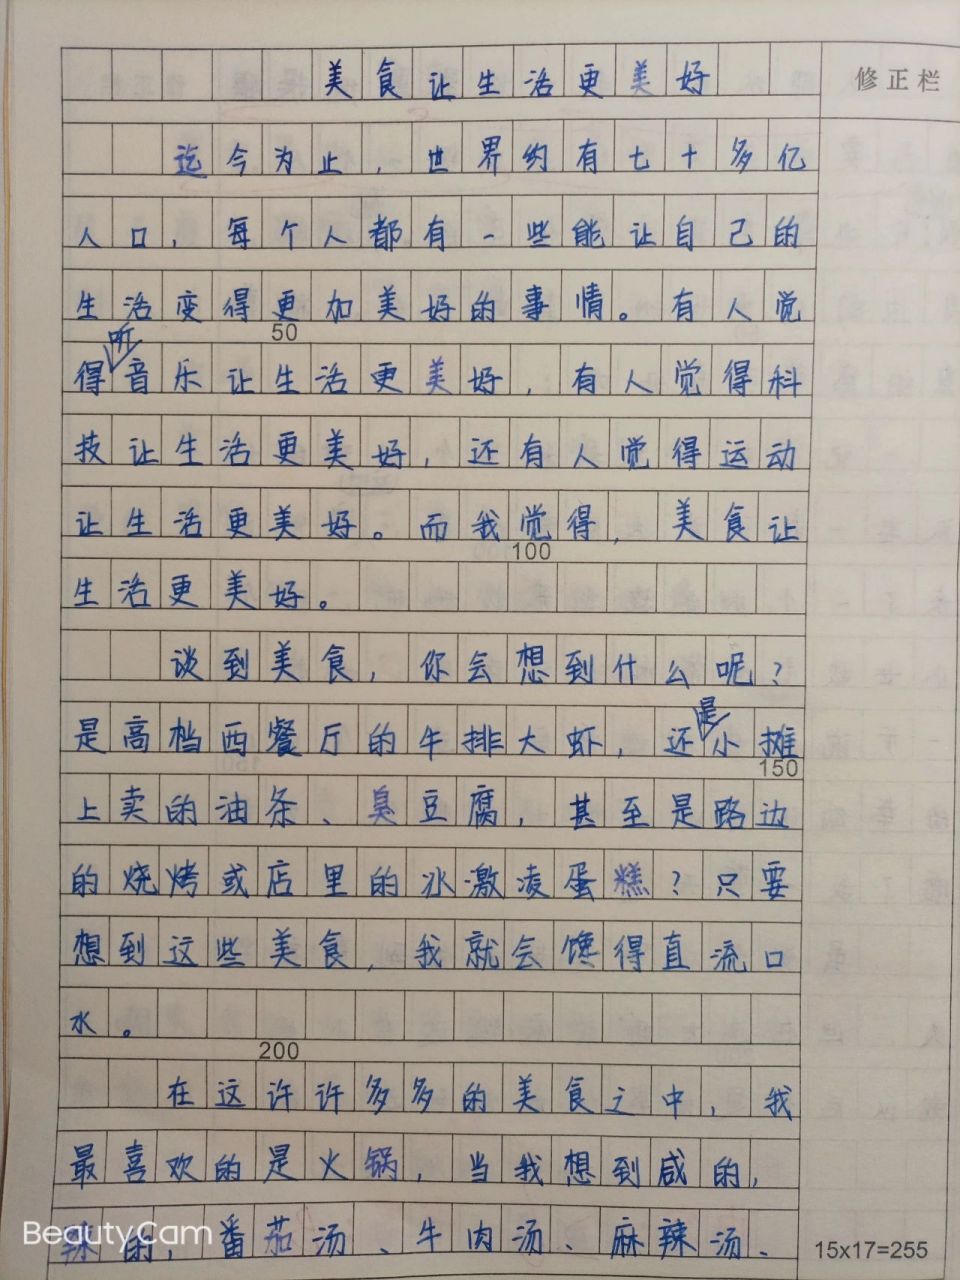 美食让生活更美好
修正栏
迄今为止，世界约有七十多亿
人口，每个人都有一些能让自己的
生活变得更加美好的事情。有人觉
50
听
得音乐让生活更美好，有人觉得科
技让生活更美好，还有人觉得运动
让生活更美好。而我觉得，美食让
100
生活更美好。
谈到美食，你会想到什么呢？
是
是高档西餐厅的牛排大虾，还小摊
150
上卖的油条、臭豆腐，甚至是路边
的烧烤或店里的冰激凌蛋糕？只要
想到这些美食，我就会馋得直流口
水。
200
在这许许多多的美食之中，我
最喜欢的是火锅，当我想到咸的，
辣的，番茄汤、牛肉汤、麻辣汤、
BeautyCam
15x17=255